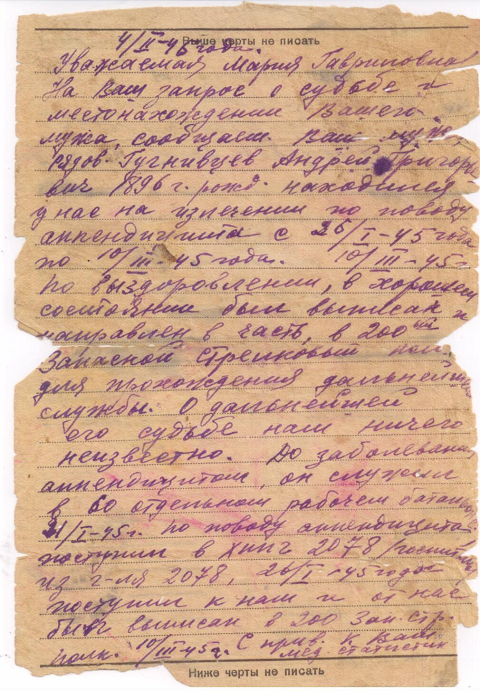 Выше черты не писать
4/II-46 года.
Уважаемая Мария Гавриловна
На Ваш запрос о судьбе и
местонахождении Вашего
мужа, сообщаем Ваш муж,
рядов. Гугнивцев Андрей Григорь
вич 1896 г. рожд. находился
у нас на излечении по поводу
аппендицита с 26/I-45 года
по 10/III-45 года. 10/III-45 г.
по выздоровлении, в хорошем
состоянии был выписан и
направлен в часть, в 200ый
Запасной стрелковый полк,
для прохождения дальнейшей
службы. О дальнейшей
его судьбе нам ничего
неизвестно. До заболевания
аппендицитом, он служил
в 60 отдельном рабочем батальо
21/I-45 г. по поводу аппендицита
поступил в ХППГ 2078 /госпит
из г-ля 2078, 26/I-45 года
поступил к нам и от нас
был выписан в 200 Зап стр.
полк. 10/III-45 г. С прив. к Вам
мед статистик
Ниже черты не писать